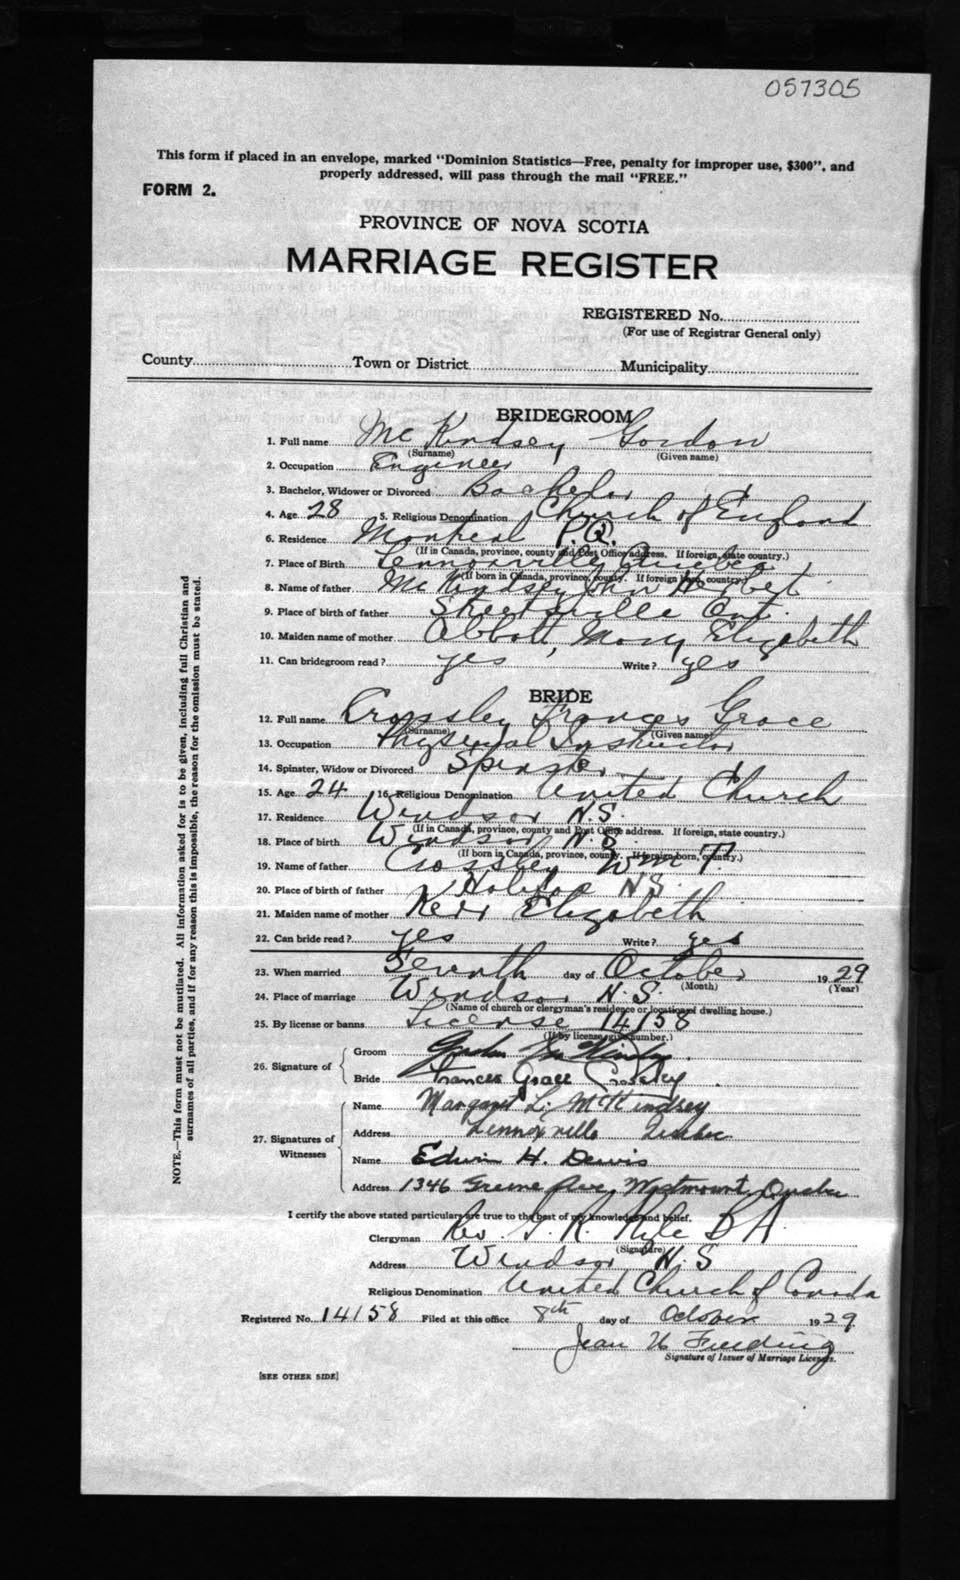 057305
This form if placed in an envelope, marked "Dominion Statistics—Free, penalty for improper use, $300", and
properly addressed, will pass through the mail "FREE."
FORM 2.
PROVINCE OF NOVA SCOTIA
MARRIAGE REGISTER
REGISTERED No.
(For use of Registrar General only)
County Town or District Municipality
BRIDEGROOM
1. Full name McKindsey Gordon
(Surname) (Given name)
2. Occupation Engineer
3. Bachelor, Widower or Divorced Bachelor
4. Age 28 5. Religious Denomination Church of England
6. Residence Montreal P.Q.
(If in Canada, province, county and Post Office address. If foreign, state country.)
7. Place of Birth Lennoxville Quebec
(If born in Canada, province, county. If foreign born, country.)
8. Name of father McKindsey John Herbert
9. Place of birth of father Streetsville Ont.
10. Maiden name of mother Abbott, Mary Elizabeth
11. Can bridegroom read? yes Write? yes
BRIDE
12. Full name Crossley Frances Grace
(Surname) (Given name)
13. Occupation Physical Instructor
14. Spinster, Widow or Divorced Spinster
15. Age 24 16. Religious Denomination United Church
17. Residence Windsor N.S.
(If in Canada, province, county and Post Office address. If foreign, state country.)
18. Place of birth Windsor N.S.
(If born in Canada, province, county. If foreign born, country.)
19. Name of father Crossley Wm T.
20. Place of birth of father Halifax N.S.
21. Maiden name of mother Kerr Elizabeth
22. Can bride read? yes Write? yes
23. When married Seventh day of October 1929
(Month) (Year)
24. Place of marriage Windsor N.S.
(Name of church or clergyman's residence or location of dwelling house.)
25. By license or banns License 14158
(If by license give number.)
26. Signature of
Groom Gordon McKindsey
Bride Frances Grace Crossley
27. Signatures of Witnesses
Name Margaret L. McKindsey
Address Lennoxville Quebec
Name Edwin H. Dewis
Address 1346 Greene Ave, Westmount, Quebec
I certify the above stated particulars are true to the best of my knowledge and belief.
Clergyman Rev. Hyle B A
(Signature)
Address Windsor N.S
Religious Denomination United Church of Canada
Registered No. 14158 Filed at this office 8th day of October 1929
Jean
Signature of Issuer of Marriage Licenses.
[SEE OTHER SIDE]
NOTE.—This form must not be mutilated. All information asked for is to be given, including full Christian and
surnames of all parties, and if for any reason this is impossible, the reason for the omission must be stated.